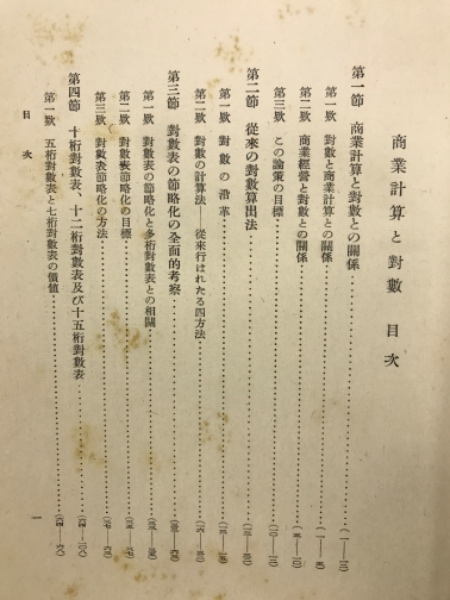 商業計算と對數 目次
第一節 商業計算と對數との關係
第一款 對數と商業計算との關係
第二款 商業經營と對數との關係
第三款 この論策の目標
第二節 從來の對數算出法
第一款 對數の沿革
第二款 對數の計算法——從來行はれたる四方法
第三節 對數表の節略化の全面的考察
第一款 對數表の節略化と多桁對數表との相關
第二款 對數表節略化の目標
第三款 對數表節略化の方法
第四節 十桁對數表、十二桁對數表及び十五桁對數表
第一款 五桁對數表と七桁對數表の價値
目次
一